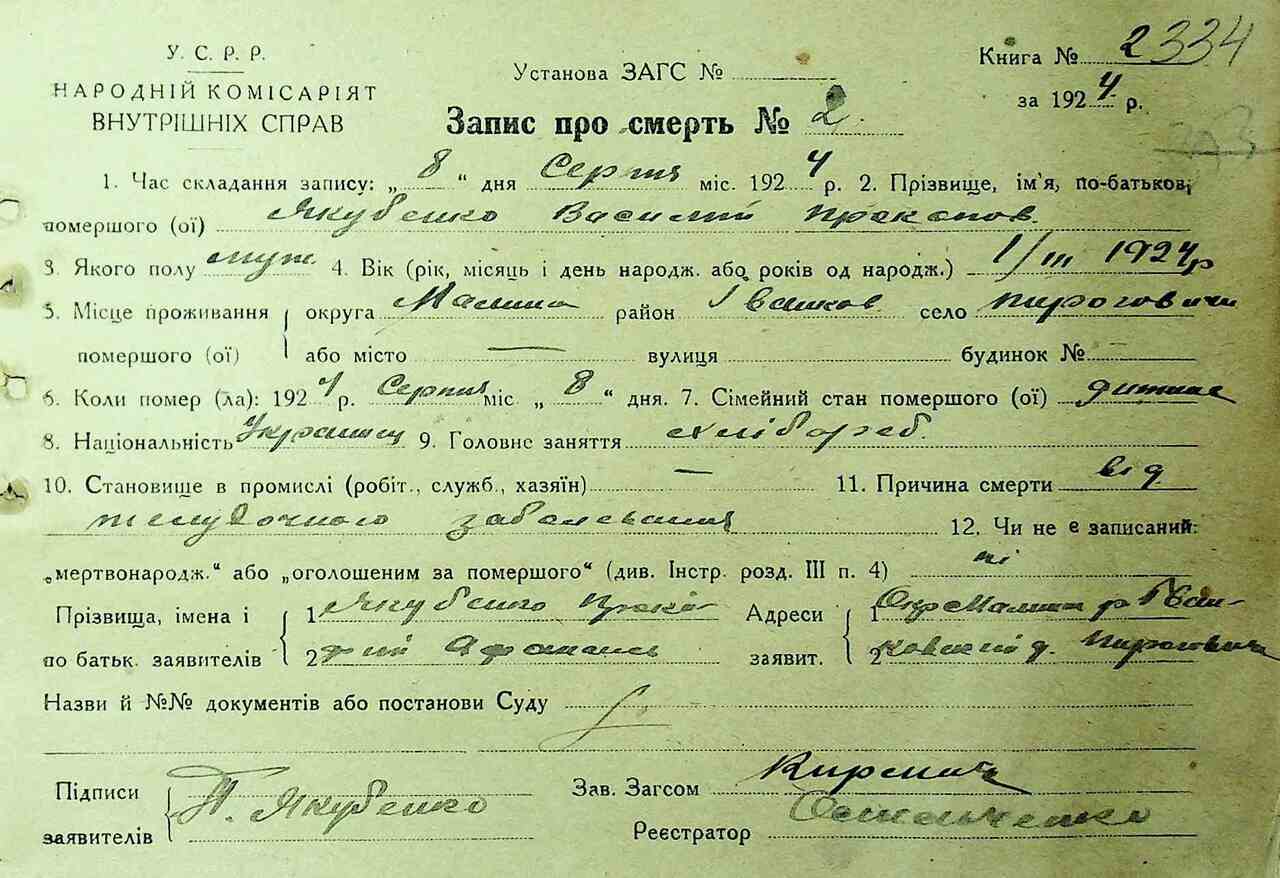 У. С. Р. Р.
НАРОДНІЙ КОМІСАРІЯТ
ВНУТРІШНІХ СПРАВ
Установа ЗАГС №
Запис про смерть № 2.
Книга № 2334
за 1924 р.
1. Час складання запису: „ 8 “ дня Серпня міс. 1924 р. 2. Прізвище, ім'я, по-батькові
помершого (ої) Якубенко Василий
3. Якого полу муж 4. Вік (рік, місяць і день народж. або років од народж.) 1/III 1924 р
5. Місце проживання округа Малина район Іванков село Пироговичи
помершого (ої) або місто — вулиця будинок №
6. Коли помер (ла): 1924 р. Серпня міс „ 8 “ дня. 7. Сімейний стан помершого (ої) дитина
8. Національність Украинец 9. Головне заняття хлібороб.
10. Становище в промислі (робіт., служб., хазяїн) — 11. Причина смерти від
желудочного заболевания 12. Чи не є записаний:
„мертвонародж.“ або „оголошеним за помершого“ (див. Інстр. розд. III п. 4) ні
Прізвища, імена і 1 Якубенко Адреси 1 Окр Малин р Іван-
по батьк. заявителів 2 заявит. 2 ковский д. Пироговичи
Назви й №№ документів або постанови Суду
Підписи П. Якубенко Зав. Загсом
заявителів Реєстратор